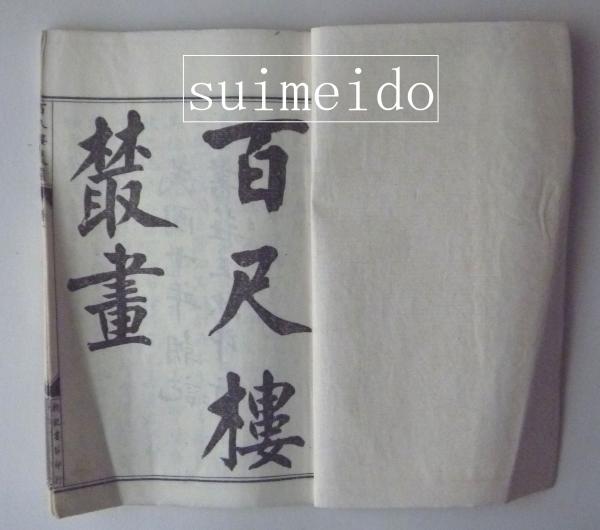 suimeido
百尺樓
叢畫